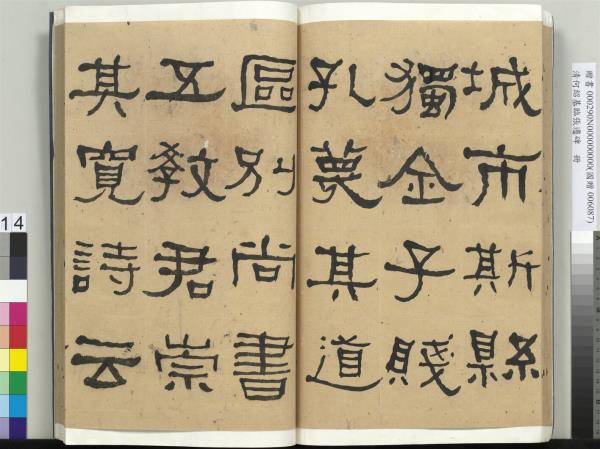 贈書 000290N000000000(國贈 006087)
清何紹基臨張遷碑 冊
城市斯縣
獨全子賤
孔蔑其道
區別尚書
五教君崇
其寬詩云
14